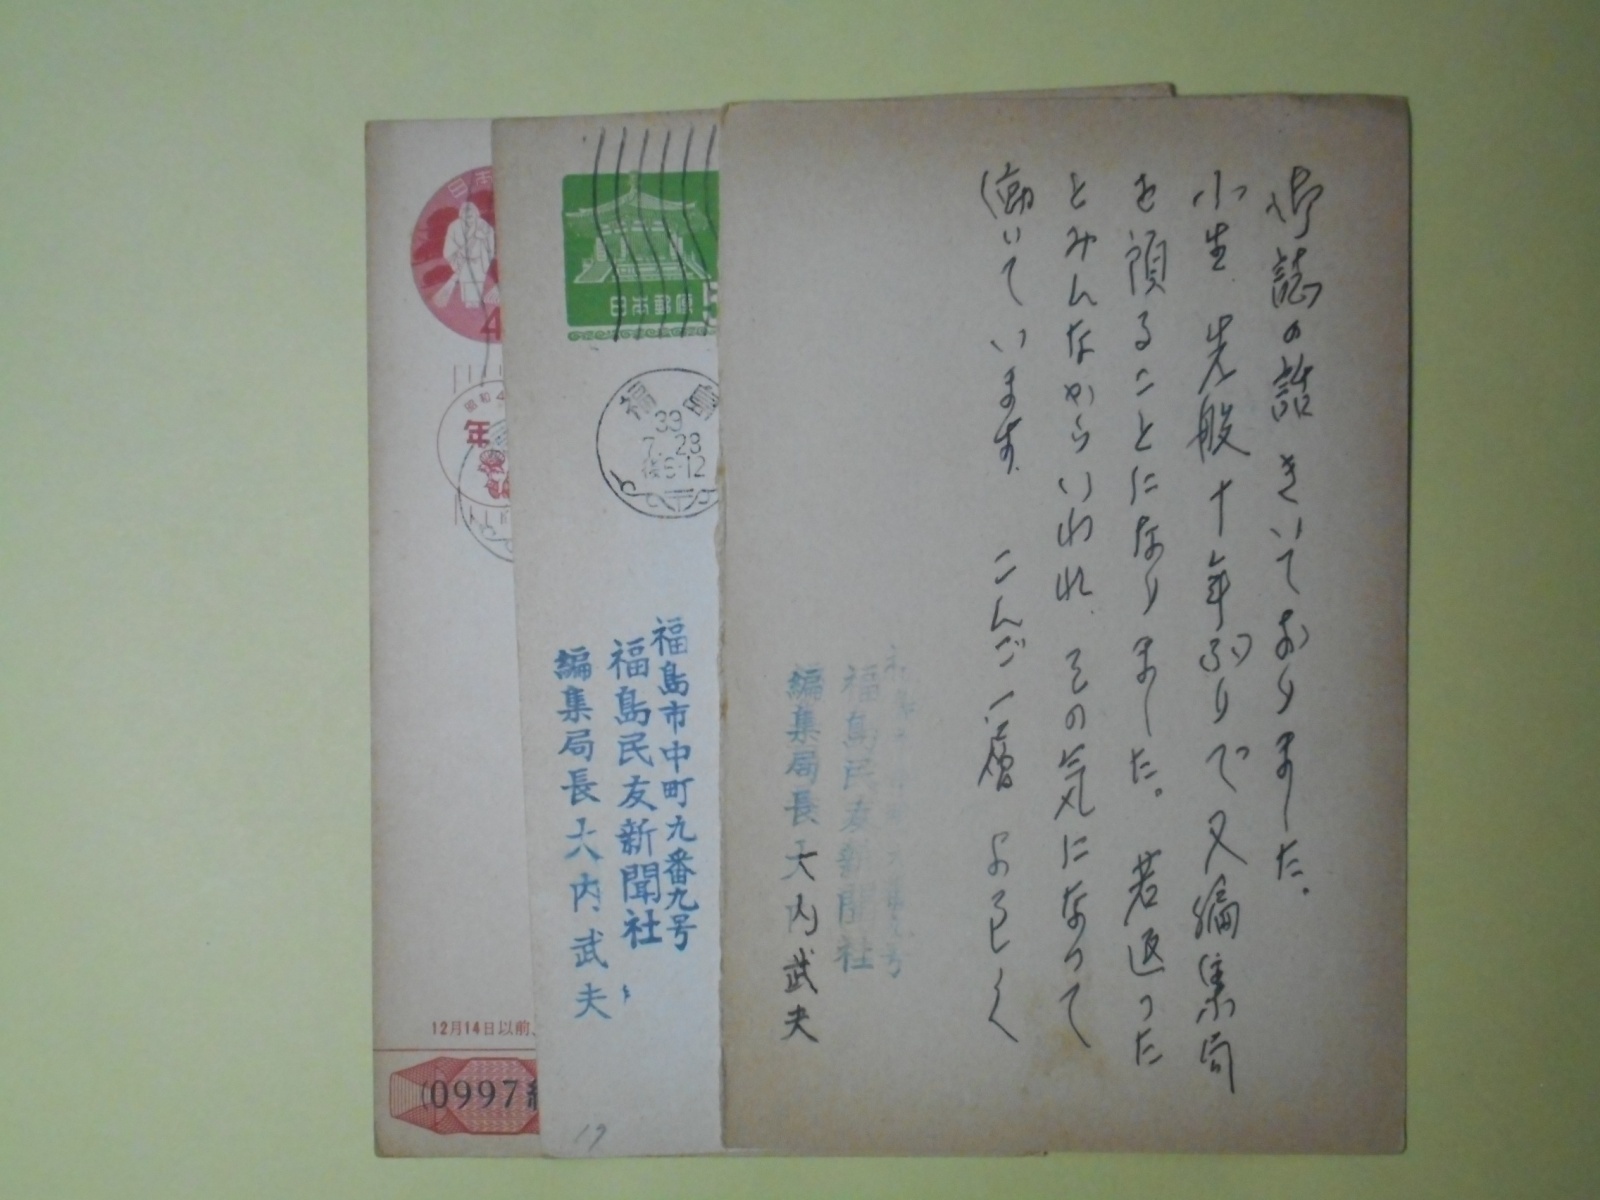 御誌の話きいておりました。
小生、先般十年ぶりで又編集局
を預ることになりました。若返った
とみんなからいわれ、その気になって
働いています。こんご一層よろしく
福島民友新聞社
編集局長 大内武夫
日本郵便
福島
福島市中町九番九号
福島民友新聞社
編集局長 大内武夫
17
日本
4
昭和4
年
12月14日以前、
(0997